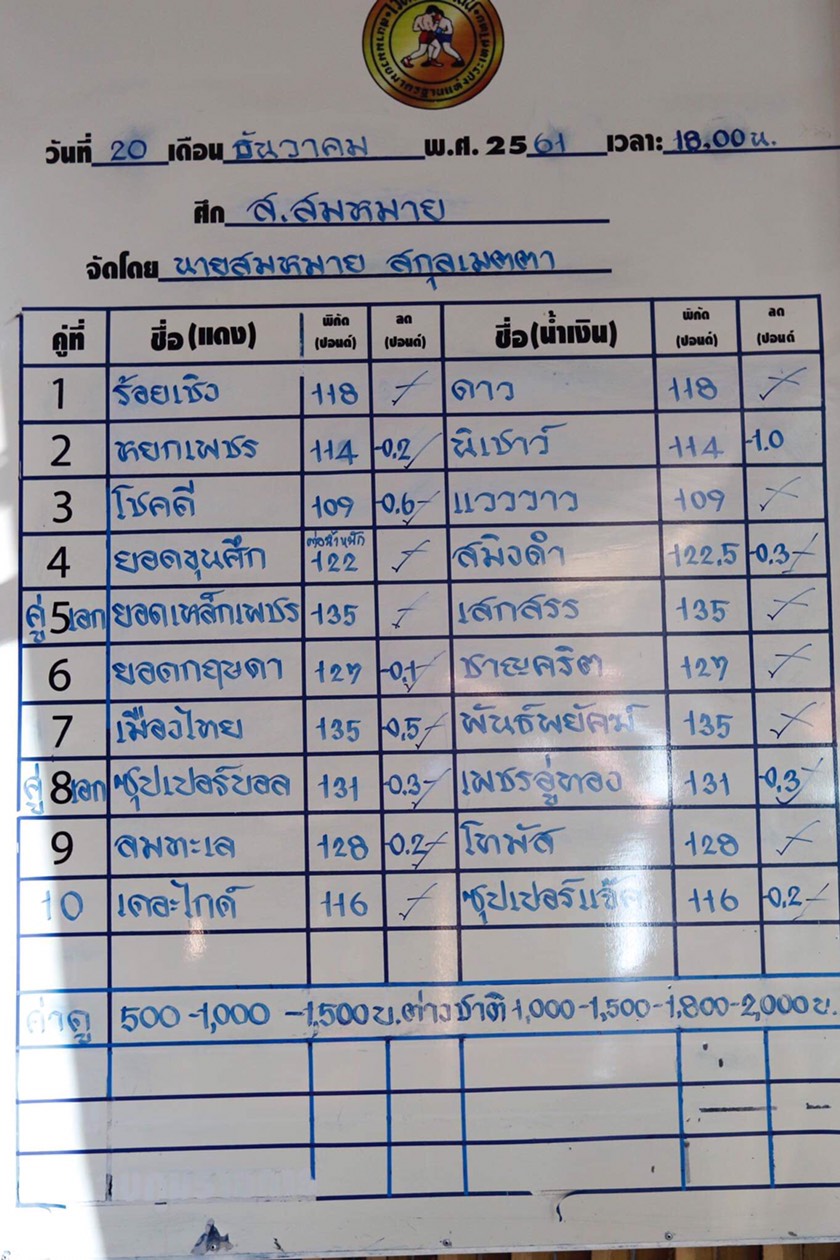 วันที่ 20 เดือน ธันวาคม พ.ศ. 2561 เวลา: 18.00 น.
ศึก ส.สมหมาย
จัดโดย นายสมหมาย สกุลเมตตา
คู่ที่ ชื่อ(แดง) พิกัด (ปอนด์) ลด (ปอนด์) ชื่อ(น้ำเงิน) พิกัด (ปอนด์) ลด (ปอนด์
1 ร้อยเชิง 118 ดาว 118
2 หยกเพชร 114 -0.2 พิเชาว์ 114 -1.0
3 โชคดี 109 -0.6 แวววาว 109
4 ยอดขุนศึก ต่อน้ำหนัก 122 สมิงดำ 122.5 -0.3
คู่ 5 เอก ยอดเหล็กเพชร 135 เสกสรร 135
6 ยอดกฤษดา 127 -0.1 ชาญคริต 127
7 เมืองไทย 135 -0.5 พันธ์พยัคฆ์ 135
คู่ 8 เอก ซุปเปอร์บอล 131 -0.3 เพชรอู่ทอง 131 -0.3
9 ลมทะเล 128 -0.2 โทมัส 128
10 เดอะไกด์ 116 ซุปเปอร์แจ๊ค 116 -0.2
ค่าดู 500-1,000-1,500 บ. ต่างชาติ 1,000-1,500-1,800-2,000 บ.